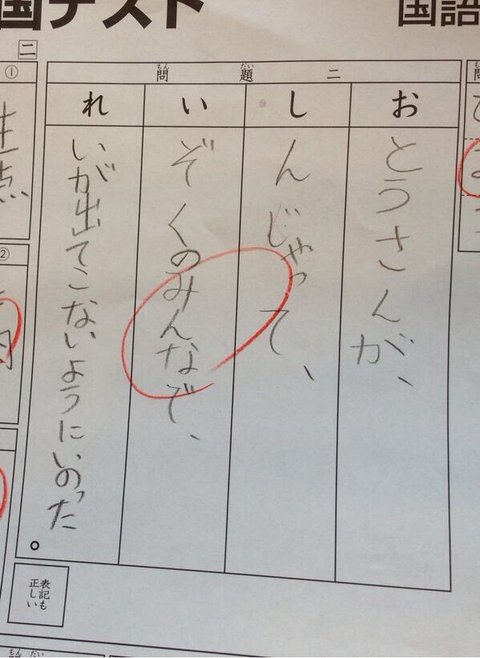 国テスト
国語
問題二
もん
だい
お
とうさんが、
し
んじゃって、
い
ぞくのみんなで、
れ
いが出てこないようにいのった
。
表記も
正しい
二
①
②
もん
だい